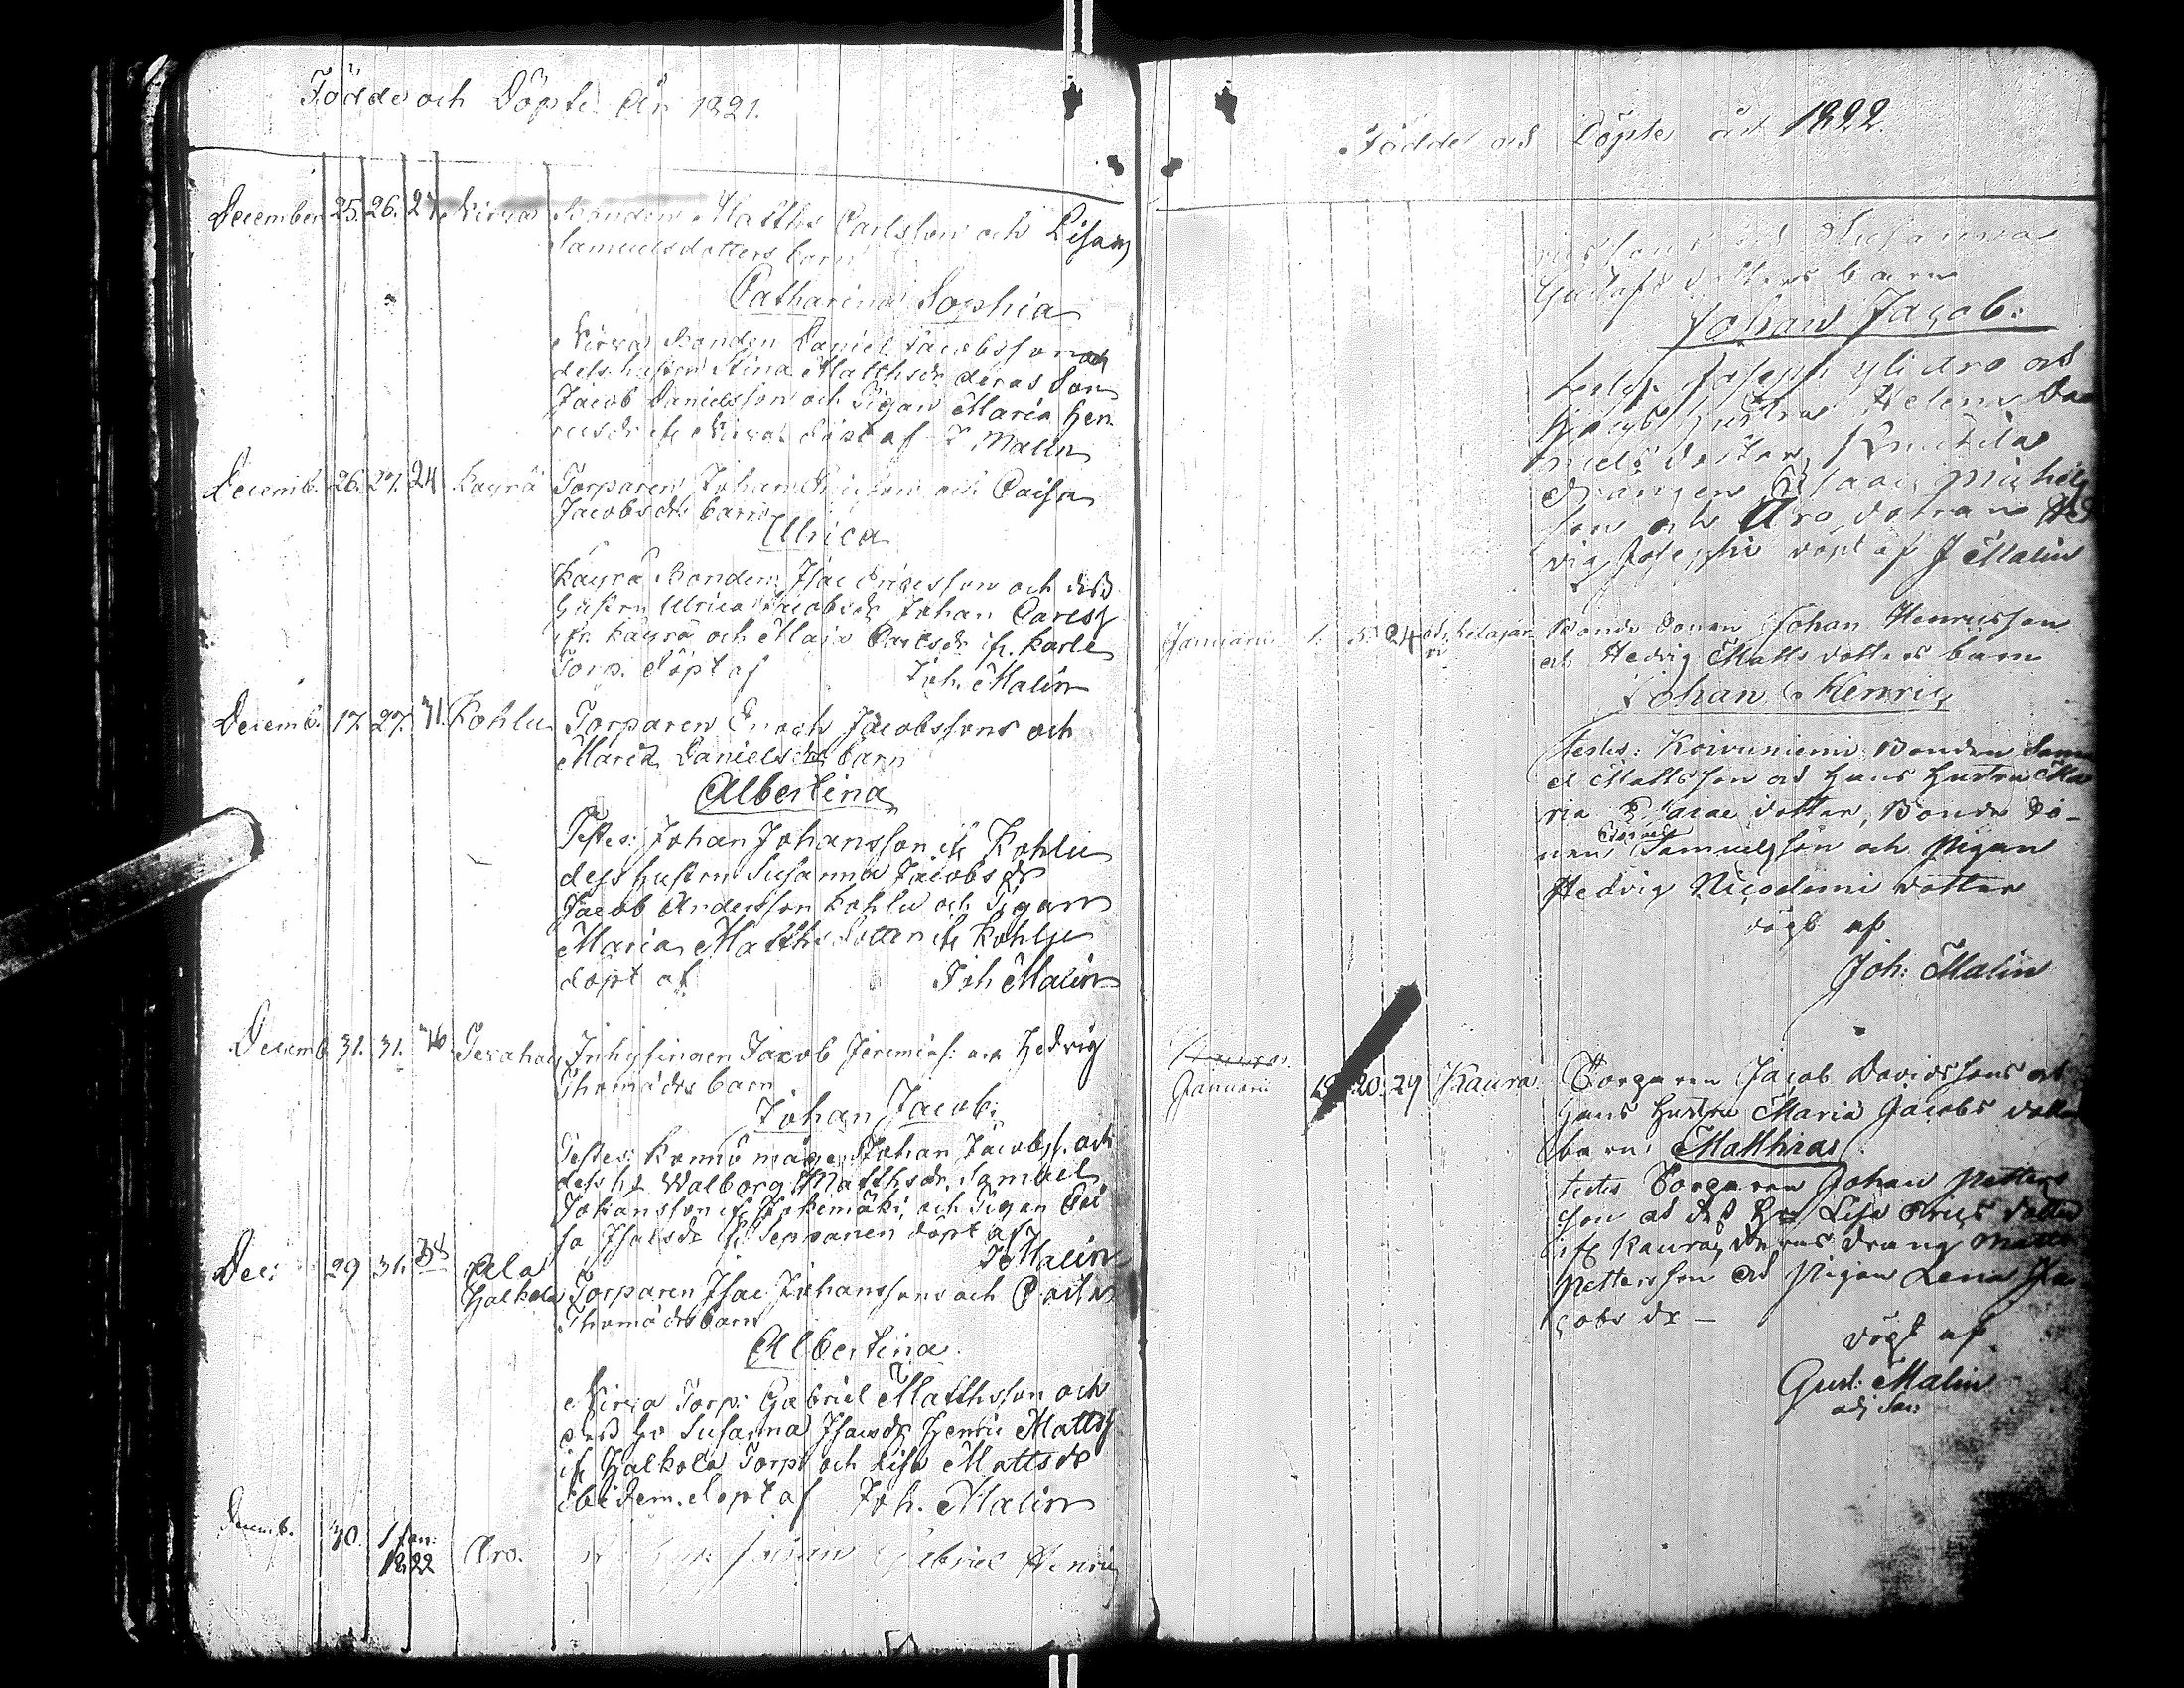 Födde och Döpte År 1821.
December 25. 26. 27 Kirra Bonden Matths Carlsson och Lisa
Samuelsdotters barn
Catharina Sophia
Kirra Bonden Daniel Jacobsson och
dess hustru Stina Matthsdr deras Son
Jacob Danielsson och Pigan Maria Hen
ricsdr ifr Kirra döpt af J Malin
Decemb. 26. 27. 24 Kayrä Torparen Johan och Caisa
Jacobsdrs barn
Ulrica
Kayrä Bonden Isac Ericsson och dess
hustru Ulrica Jacobsdr Johan Carlss
ifr. Kayrä och Maja Carlsdr ifr. Karle
Torp. Döpt af Joh. Malin
Decemb. 17. 27. 31. Kohlu Torparen Enoch Jacobssons och
Maria Danielsdrs barn
Albertina
Testes: Johan Johansson ifr Kohlu
dess hustru Susanna Jacobsdr
Jacob Andersson Kohlu och Pigan
Maria Matths dotter ifr Kohlu
döpt af Joh Malin
Decemb 31. 31. Inhysingen Jacob Jeremiæs: och Hedvig
Thomædrs barn
Johan Jacob:
Testes: måge Johan Jacobss. och
dess h. Walborg Matthsdr. Samuel
Johansson ifr och Pigan Cai
sa Isacsdr ifr Seppänen döpt af
J Malin
Dec: 29 31. 38 Ala
Halkola Torparen Isac Johanssons och Caisa
Thomædrs barn
Albertina
Kirra Torp: Gabriel Matthsson och
dess h. Susanna Isacsdr Henric Matts
ifr Halkola Torp och Lisa Mattsdr
ibidem. döpt af Joh. Malin
Decemb. 30. 1 Jan:
1822 Aro. Johan Gabriel Henric
Födde och Döpte år 1822.
ricssons och Susanna
Gustafs dotters barn
Johan Jacob:
Testes Joseph yli Aro och
hustru Helena Da
niels dotter,
Drängen Isaac Michels
son och Aro dottran Hed
vig Josephi döpt af J Malin
Januarii 1. 5. 24 Bonde Sonen Johan Henricsson
och Hedvig Matts dotters barn
Johan Henric
Testes: Koivuniemi Bonden Samu
el Mattsson och Hans Hustru Ma
ria Isacs dotter, Bonde So-
nen Samuelsson och Pigan
Hedvig Nicodemi dotter
döpt af
Joh: Malin
Januarii 18 20. 29 Kaura Torparen Jacob Davidssons och
Hans Hustru Maria Jacobs dotters
barn Matthias.
testes Torparen Johan Petters
son och dess H Lisa Erics dotter
ifr Kaura, deras dräng Matts
Pettersson och Pigan Lena Ja
cobs dr –
döpt af
Gust: Malin